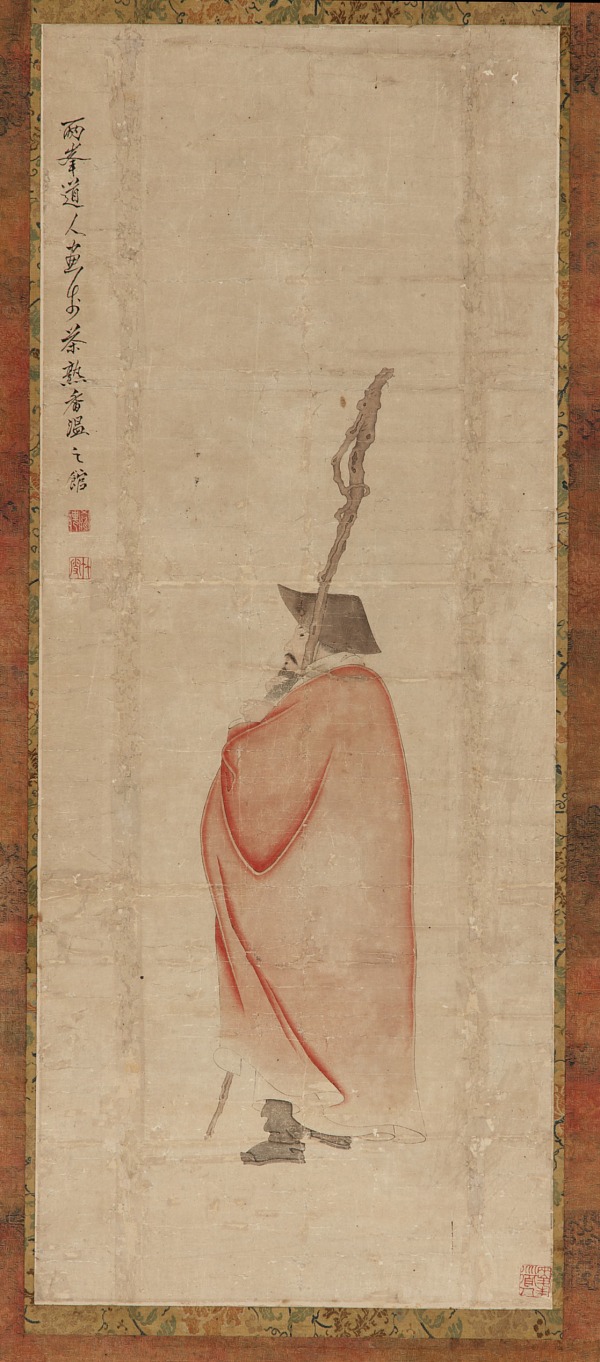 兩峯道人畫於茶熟香溫之館